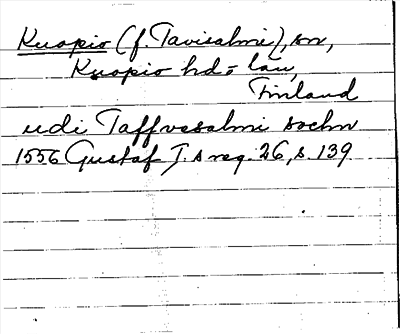 Kuopio (f. Tavisalmi), sn,
Kuopio hd o län,
Finland
udi Taffvesalmi sochn
1556 Gustaf I:s reg. 26, s. 139